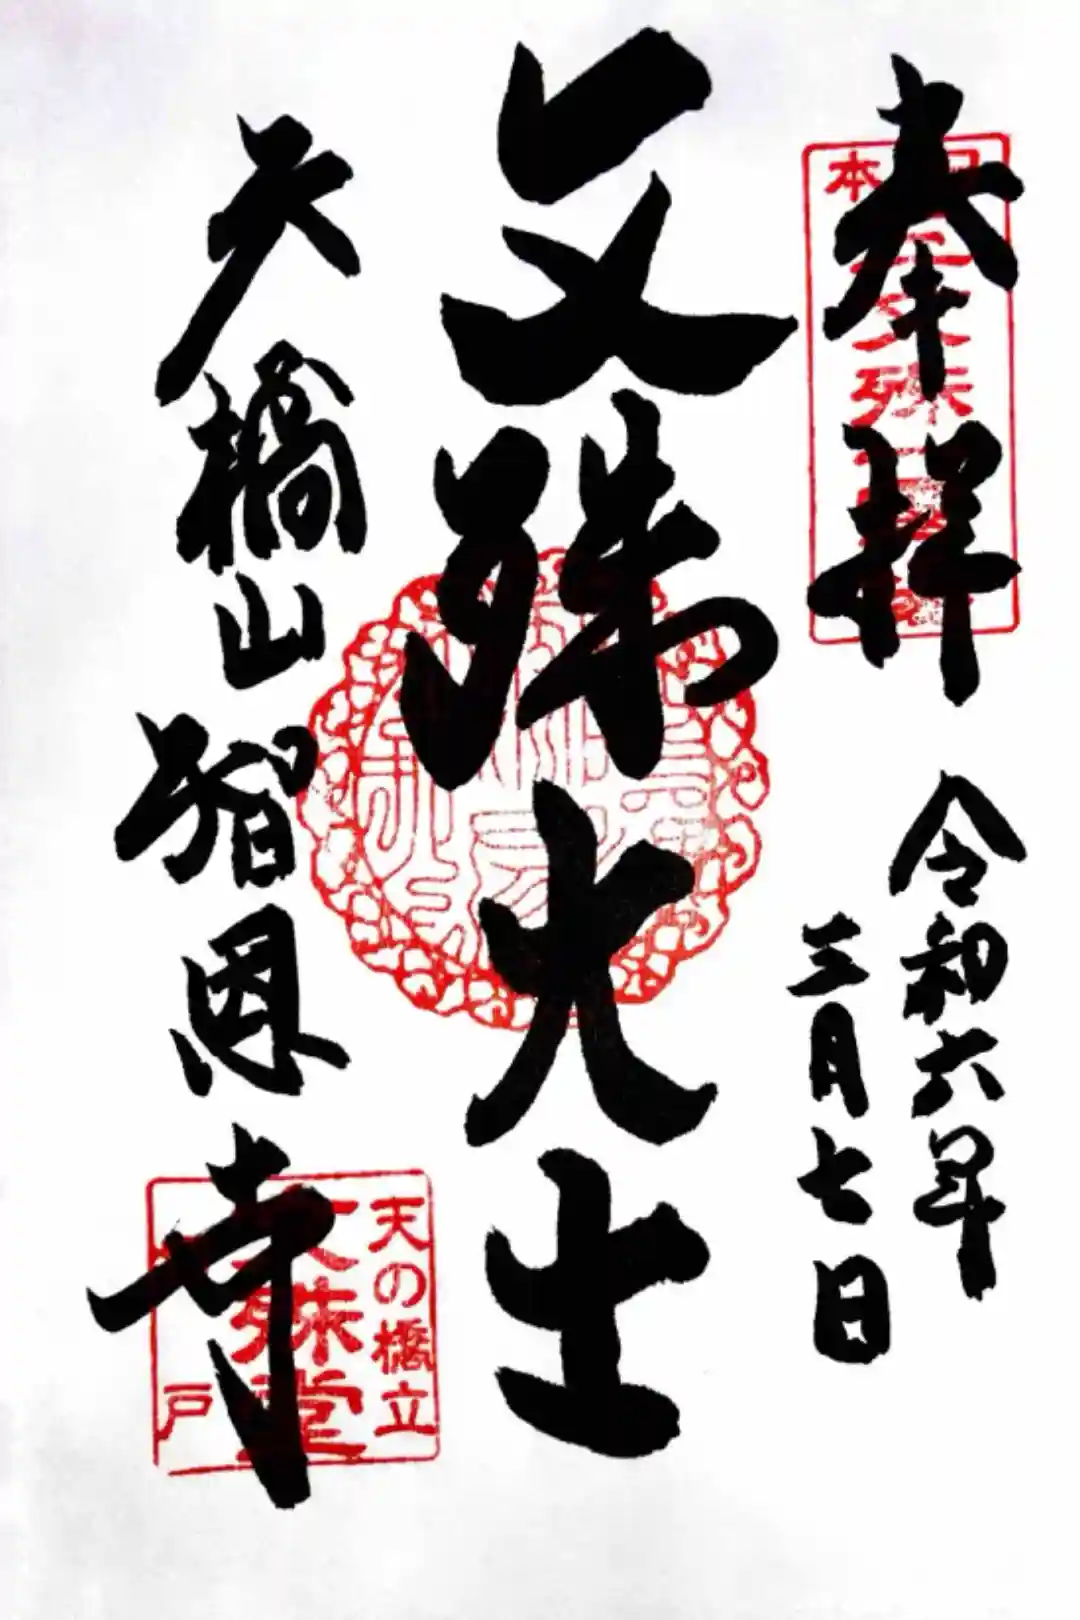 奉拝
令和六年
三月七日
文殊大士
天橋山
智恩寺
天の橋立
文殊堂